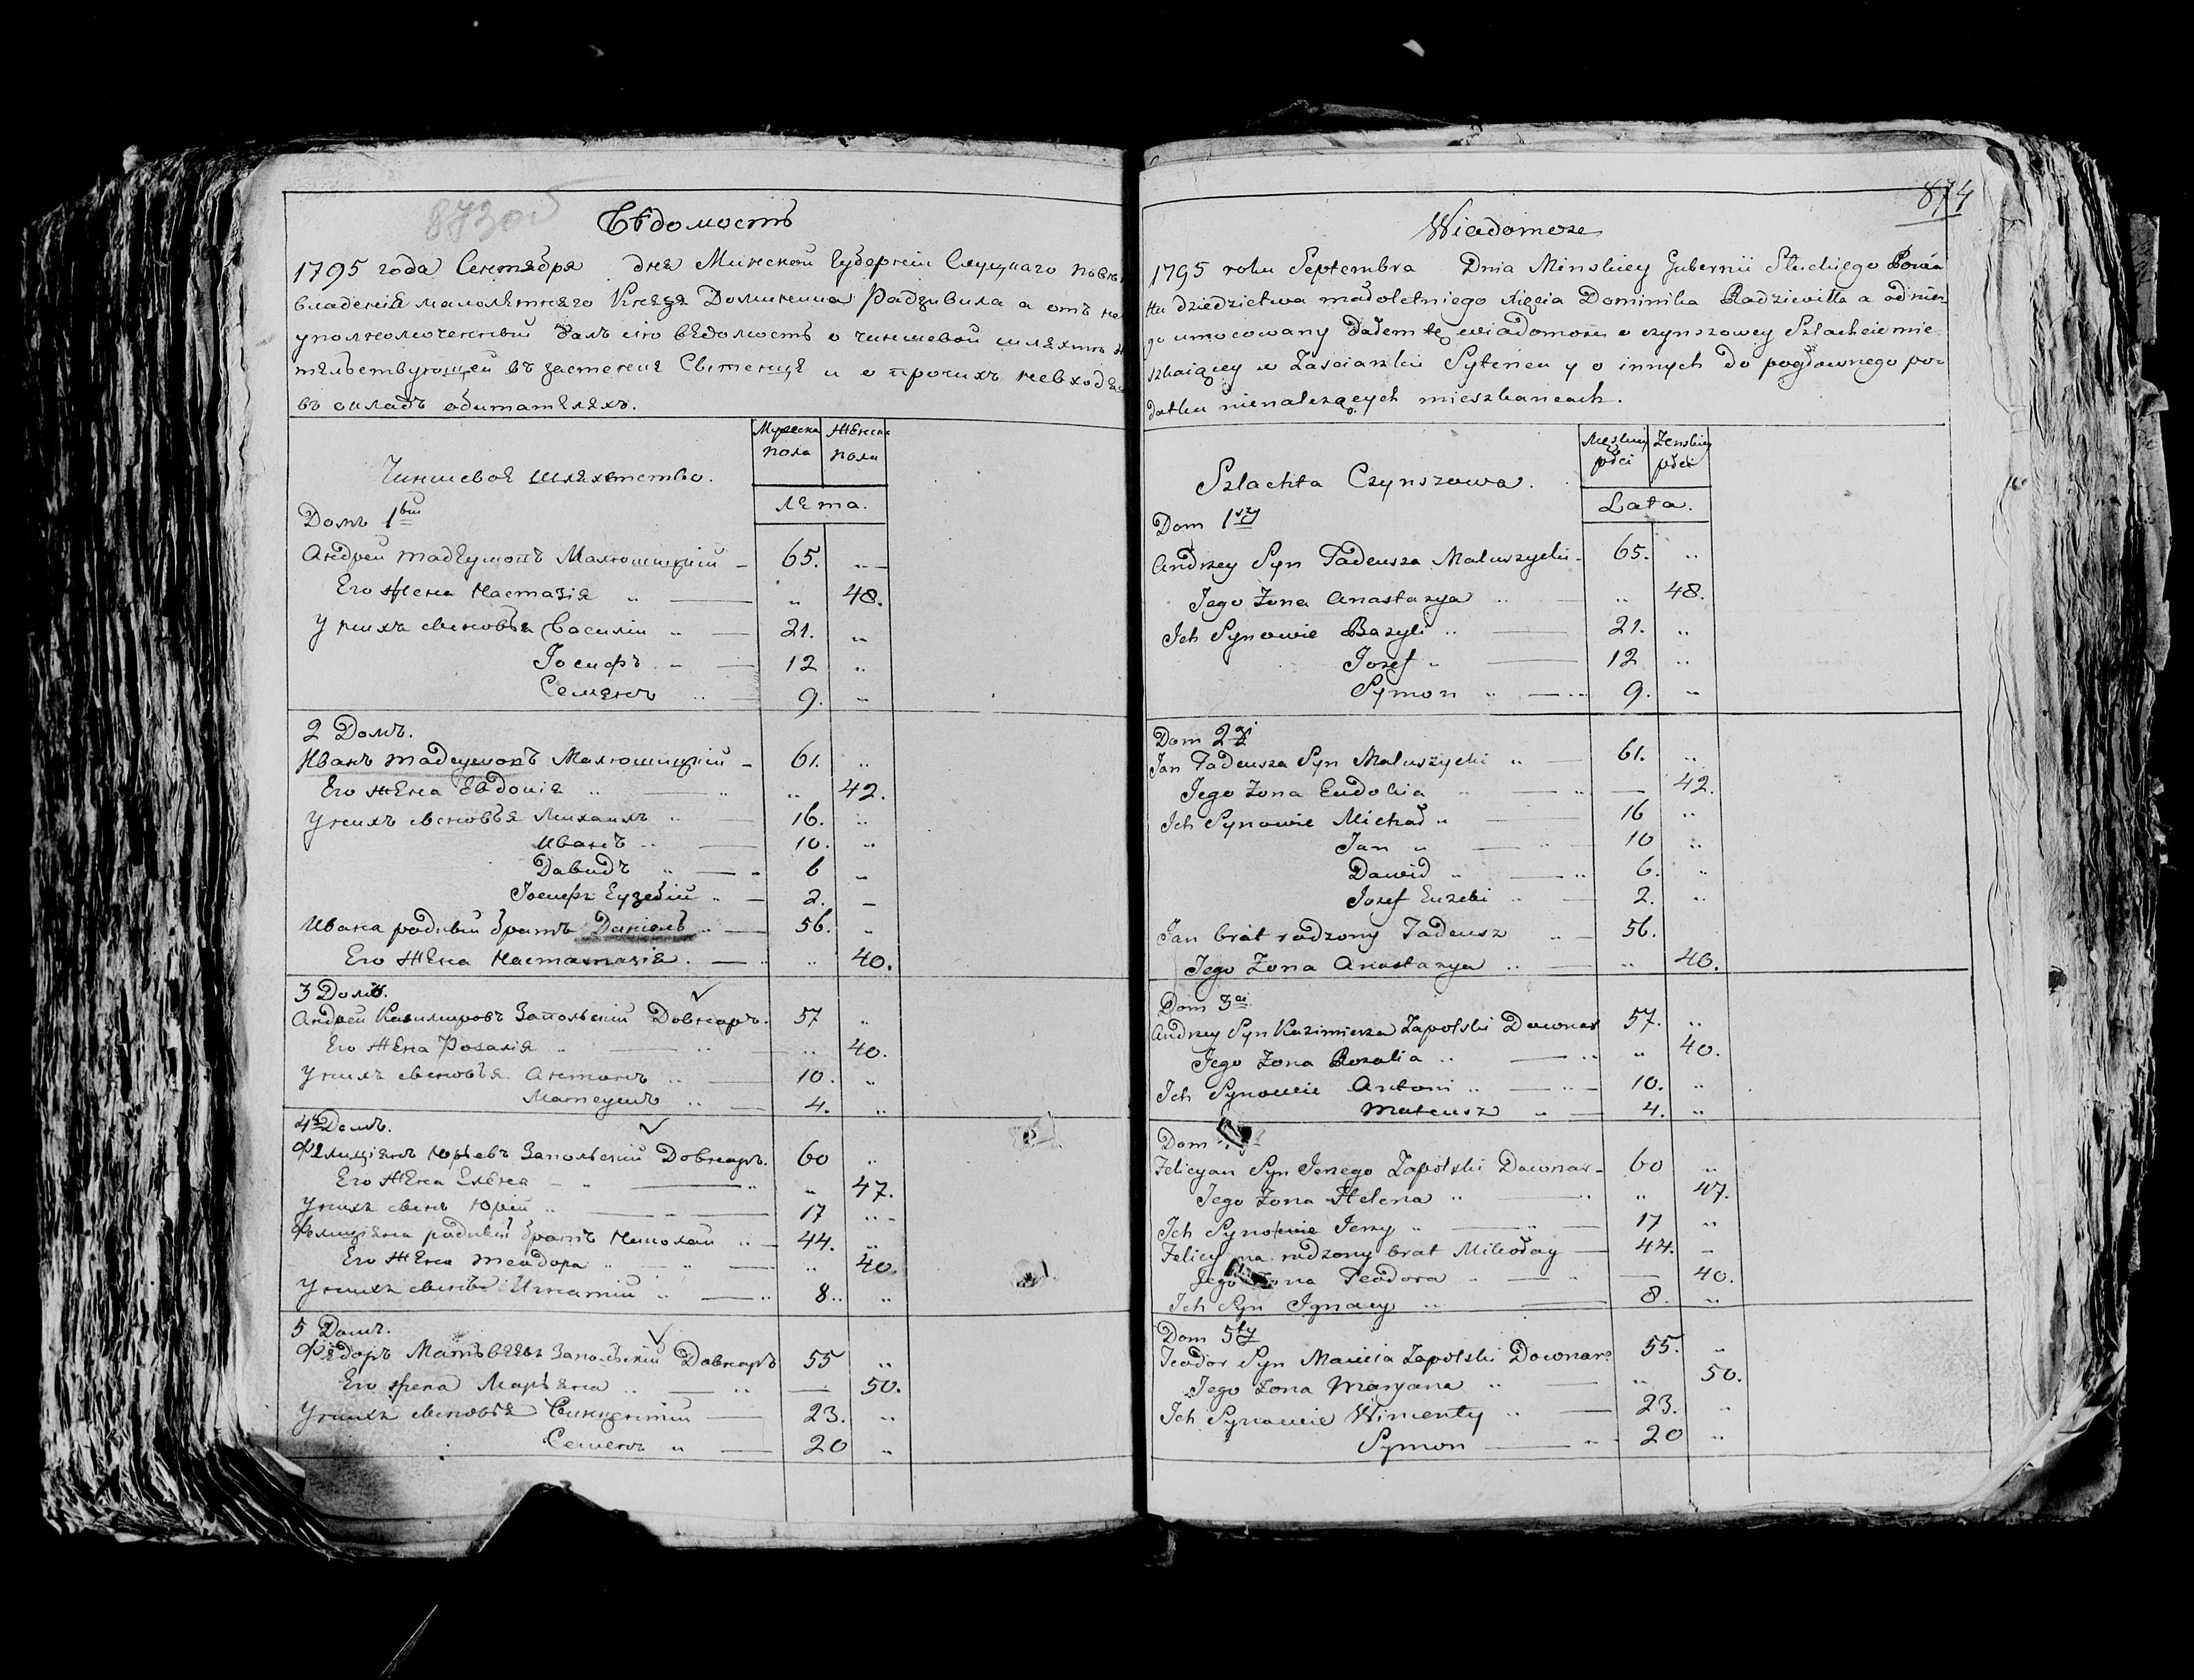 873об
Вѣдомость
1795 года Сентября дня Минской Губернiи Слуцкаго
владенiя малолѣтняго Князя Доминика Радзивила а отъ не
уполномоченный далъ сiю вѣдомость о чиншевой шляхтѣ
тельствующей въ застенке и о прочихъ невходя
въ окладъ обитателяхъ.
Чиншевое шляхетство.
Мужеска пола
Женска пола
Лета.
Домъ 1вый
Андрей Тадеушовъ Малюшицкiй 65.
Его Жена Настазiя 48.
У нихъ сыновья Василiй 21.
Iосифъ 12
Семенъ 9.
2 Домъ.
Иванъ Тадеушовъ Малюшицкiй 61.
Его Жена Евдокiя 42.
У нихъ сыновья Михаилъ 16.
Иванъ 10.
Давидъ 6
Iосифъ Еузебiй 2.
Ивана родный братъ Данiель 56.
Его Жена 40.
3 Домъ.
Андрей Казимировъ Запольскiй Довнаръ. 57
Его Жена Розалiя 40.
У нихъ сыновья Антонъ 10.
Матеушъ 4.
4 Домъ.
Фелицiянъ Юрьевъ Запольскiй Довнаръ. 60
Его Жена Елена 47.
У нихъ сынъ Юрiй 17
Фелицiяна родный братъ Николай 44.
Его Жена Теодора 40.
У нихъ сынъ Игнатiй 8.
5 Домъ.
Федоръ Матвѣевъ Запольскiй Довнаръ 55
Его жена Марьяна 50.
У нихъ сыновья Викентiй 23.
Семенъ 20
874
Wiadomosc
1795 roku Septembra Dnia Minskiey Gubernii Słuckiego Powia
tu dziedzictwa małoletniego Xięcia Dominika Radziwiłła a od nie
go umocowany dałem tę wiadomosc o czynszowey Szlachcie mie
szkaiącey w Zascianku y o innych do pogłownego po
datku nienalezących mieszkancach.
Szlachta Czynszowa.
Męskiey płci
Zenskiey płci
Lata.
Dom 1szy
Andrzey Syn Tadeusza Maluszycki 65.
Jego Zona Anastazya 48.
Ich Synowie Bazyli 21.
Jozef 12
Symon 9.
Dom 2gi
Jan Tadeusza Syn Maluszycki 61.
Jego Zona Eudokia 42.
Ich Synowie Michał 16
Jan 10
Dawid 6.
Jozef Euzebi 2.
Jan brat rodzony Tadeusz 56.
Jego Zona Anastazya 40.
Dom 3ci
Andrzey Syn Kazimierza Zapolski Downar 57.
Jego Zona Rozalia 40.
Ich Synowie Antoni 10.
Mateusz 4.
Dom
Felicyan Syn Jerzego Zapolski Downar 60
Jego Zona Helena 47.
Ich Synowie Jerzy 17
Felicyana rodzony brat Mikołay 44.
Jego Zona Teodora 40.
Ich Syn Ignacy 8.
Dom 5ty
Teodor Syn Macieia Zapolski Downar 55.
Jego Zona Maryana 50.
Ich Synowie Wincenty 23.
Symon 20